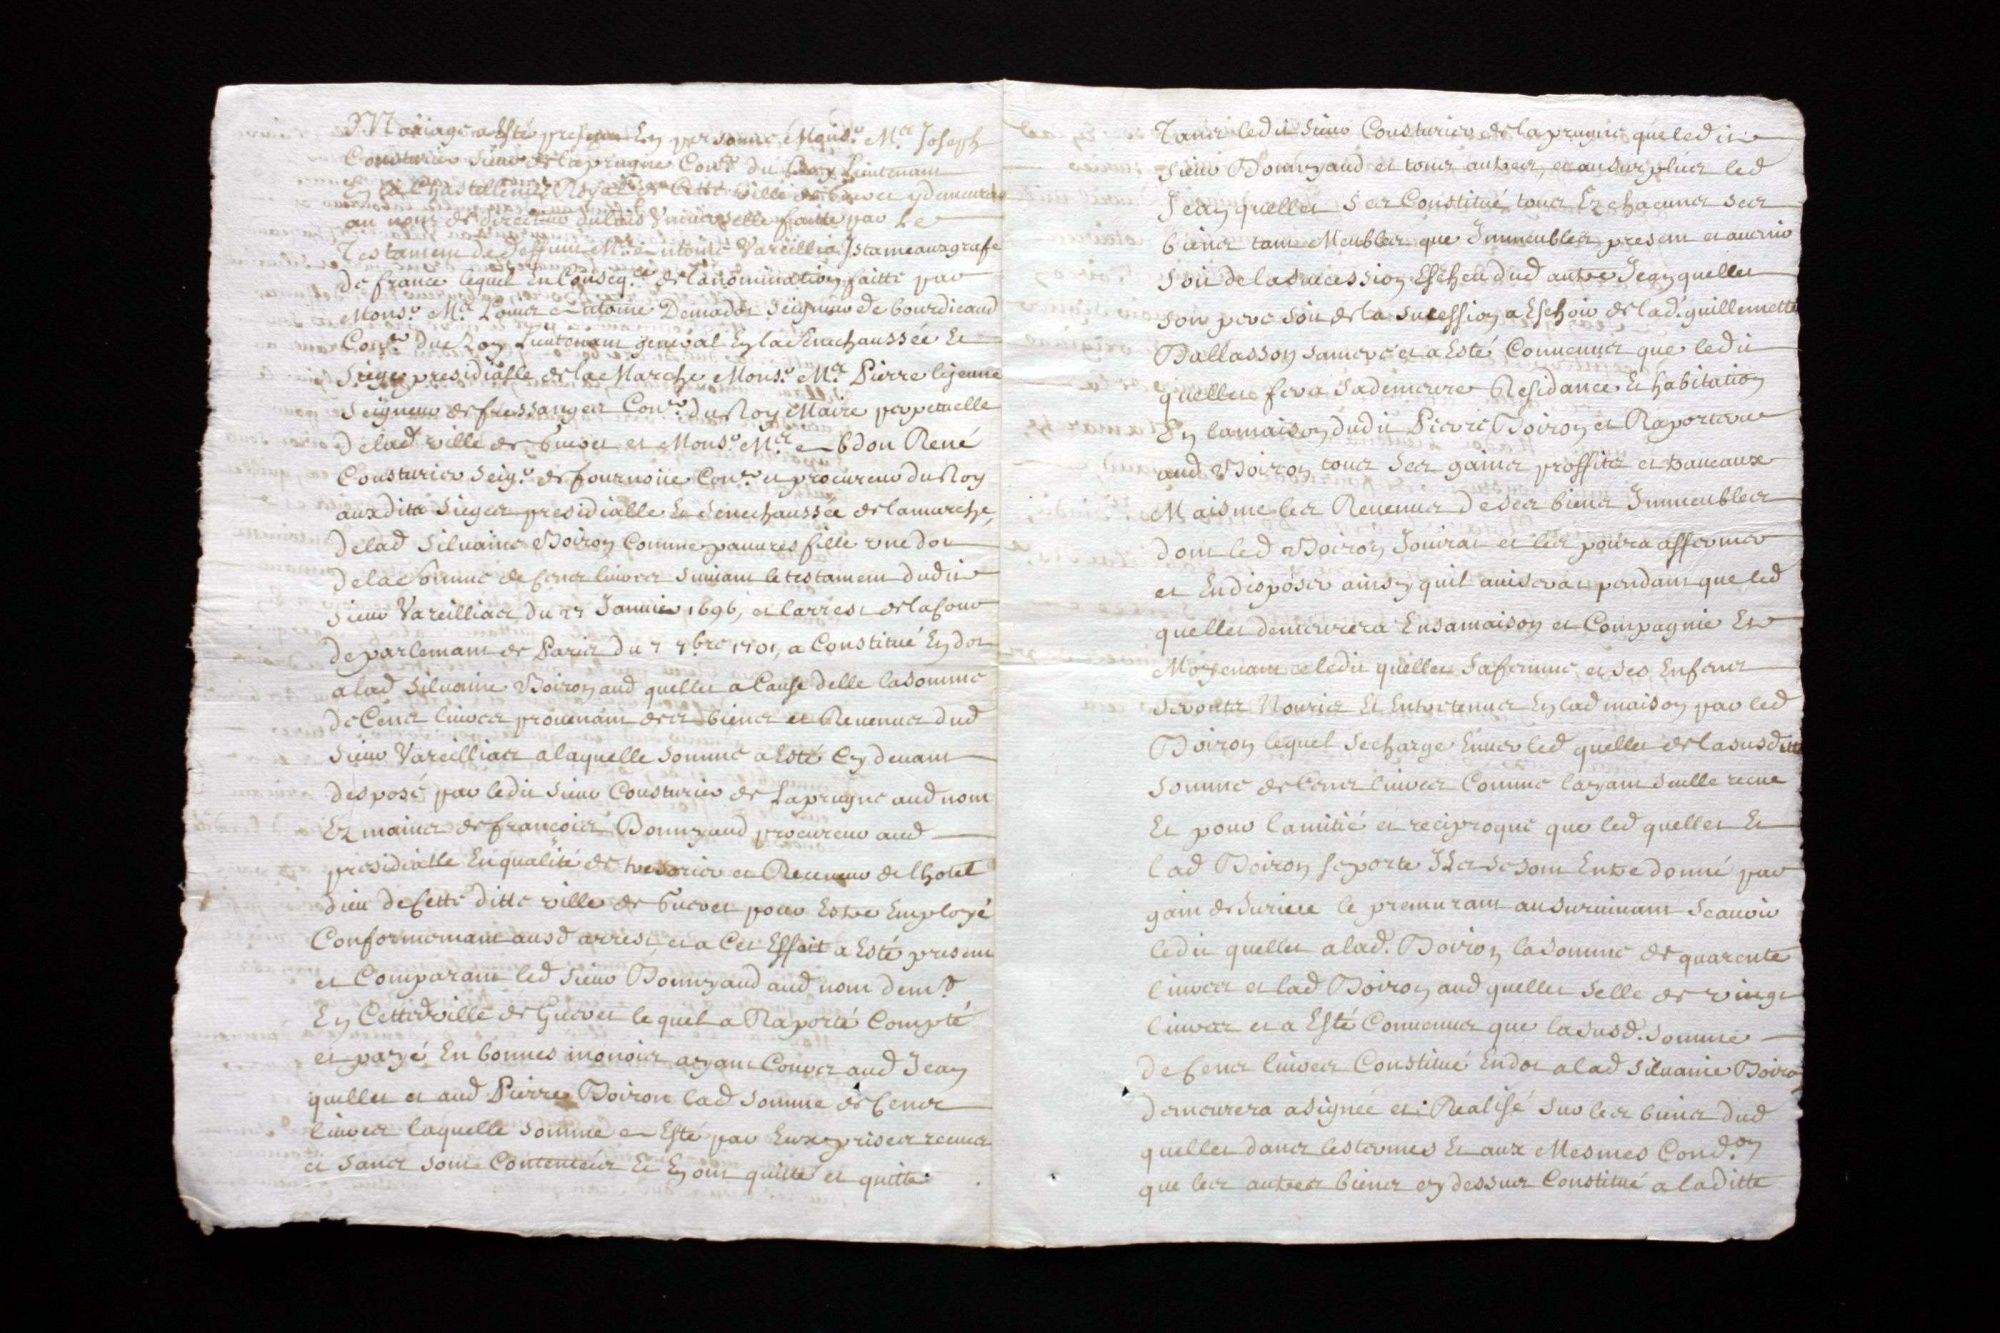 Mariage a Esté present En personne Mons.r M.e Joseph
Cousturier Sieur de laprugne Con.er du Roy Lieutenant
En la Chastellenie Royalle de Cette Ville de Gueret y demeurant
au nom de directeur faitte par Le
Testament de deffunt M.re Antoine Vareillias
de france lequel En Conseq.ce de la nomination faitte par
Mons.r M.e Louis Antoine Seigneur de bourdicaud
Con.er du Roy Lieutenant general En la senechaussée Et
Siege presidialle de la Marche Mons.r M.e Pierre lejeune
Seigneur de fressanges Con.er du Roy Maire perpetuelle
de lad ville de Gueret et Mons.r M.e Abdon René
Cousturier Seig.r de fournoüe Con.er et procureur du Roy
auxdits Sieges presidialle Et Senechaussée de lamarche,
de lad Siluaine Boiron Comme pauures fille une dot
de la Somme de Cens liures Suiuant le testament dudit
Sieur Vareillias du 27 Januier 1696, et larrest de la Cour
de parlemant de Paris du 7 7.bre 1701, a Constitué En dot
a lad Siluaine Boiron aud quellet a Cause delle la Somme
de Cens liures prouenant des biens et Reuenus dud
Sieur Vareillias a laquelle Somme a Esté Cy deuant
desposé par ledit Sieur Cousturier de Laprugne aud nom
Ez mains de françois Bonnyaud procureur aud
presidialle En qualité de tresorier et Receueur de lhotel
dieu de Cette ditte ville de Gueret pour Estre Employé
Conformemant ausd arrest, et a Cet Effait a Esté present
et Comparant led Sieur Bonnyaud aud nom dem.t
En Cetted ville de Gueret lequel a Raporté Compté
et payé En bonnes monois ayant Cours aud Jean
quellet et aud Pierre Boiron lad Somme de Cens
liures laquelle Somme a Esté par Eux prises receues
et sans sont Contentées Et En ont quitté et quitte
Tans ledit Sieur Cousturier de laprugne que ledit
Sieur Bonnyaud et tous autres, et au Surplus led
Jean quellet Ses Constitué tous Ez chacuns Ses
biens tant Meubles que Jmmeubles present et auenir
Soit de la Sucession Escheu dud autre Jean quellet
Son pere Soit de la Sucession a Eschoir de lad. guillemette
Ballasson Samere et a Esté Conuenus que ledit
quellet fera Sa demeure Residance Et habitation
En la maison dudit Pierre Boiron et Raportera
aud Boiron tous Ses gains proffits et trauaux
Maisme les Reuenus de Ses biens Jmmeubles
dont led Boiron Jouirat et les poura affermer
et En disposer ainsy quil auiserat pendant que led
quellet demeurera En Samaison et Compagnie Et
Moyenant ce ledit quellet Safemme et Ses Enfens
Seronts Nouris Et Entretenus En lad maison par led
Boiron lequel Secharge Enuer led quellet de la susditte
Somme de Cens liures Comme layant Seulle receue
Et pour lamitié et reciproque que led quellet Et
lad Boiron Se porte Jls Se Sont Entre donné par
gain de Suruie le premurant au Suruiuant Scauoir
ledit quellet a lad. Boiron la Somme de quarente
liures et lad Boiron aud quellet Selle de vingt
liures et a Esté Conuenus que la susd. Somme
de Cens liures Constitué En dot a lad Siluaine Boiron
demeurera asignée et Realisé Sur les biens dud
quellet dans les termes Et aux Mesmes Cond.on
que les autres biens cy dessus Constitué a laditte